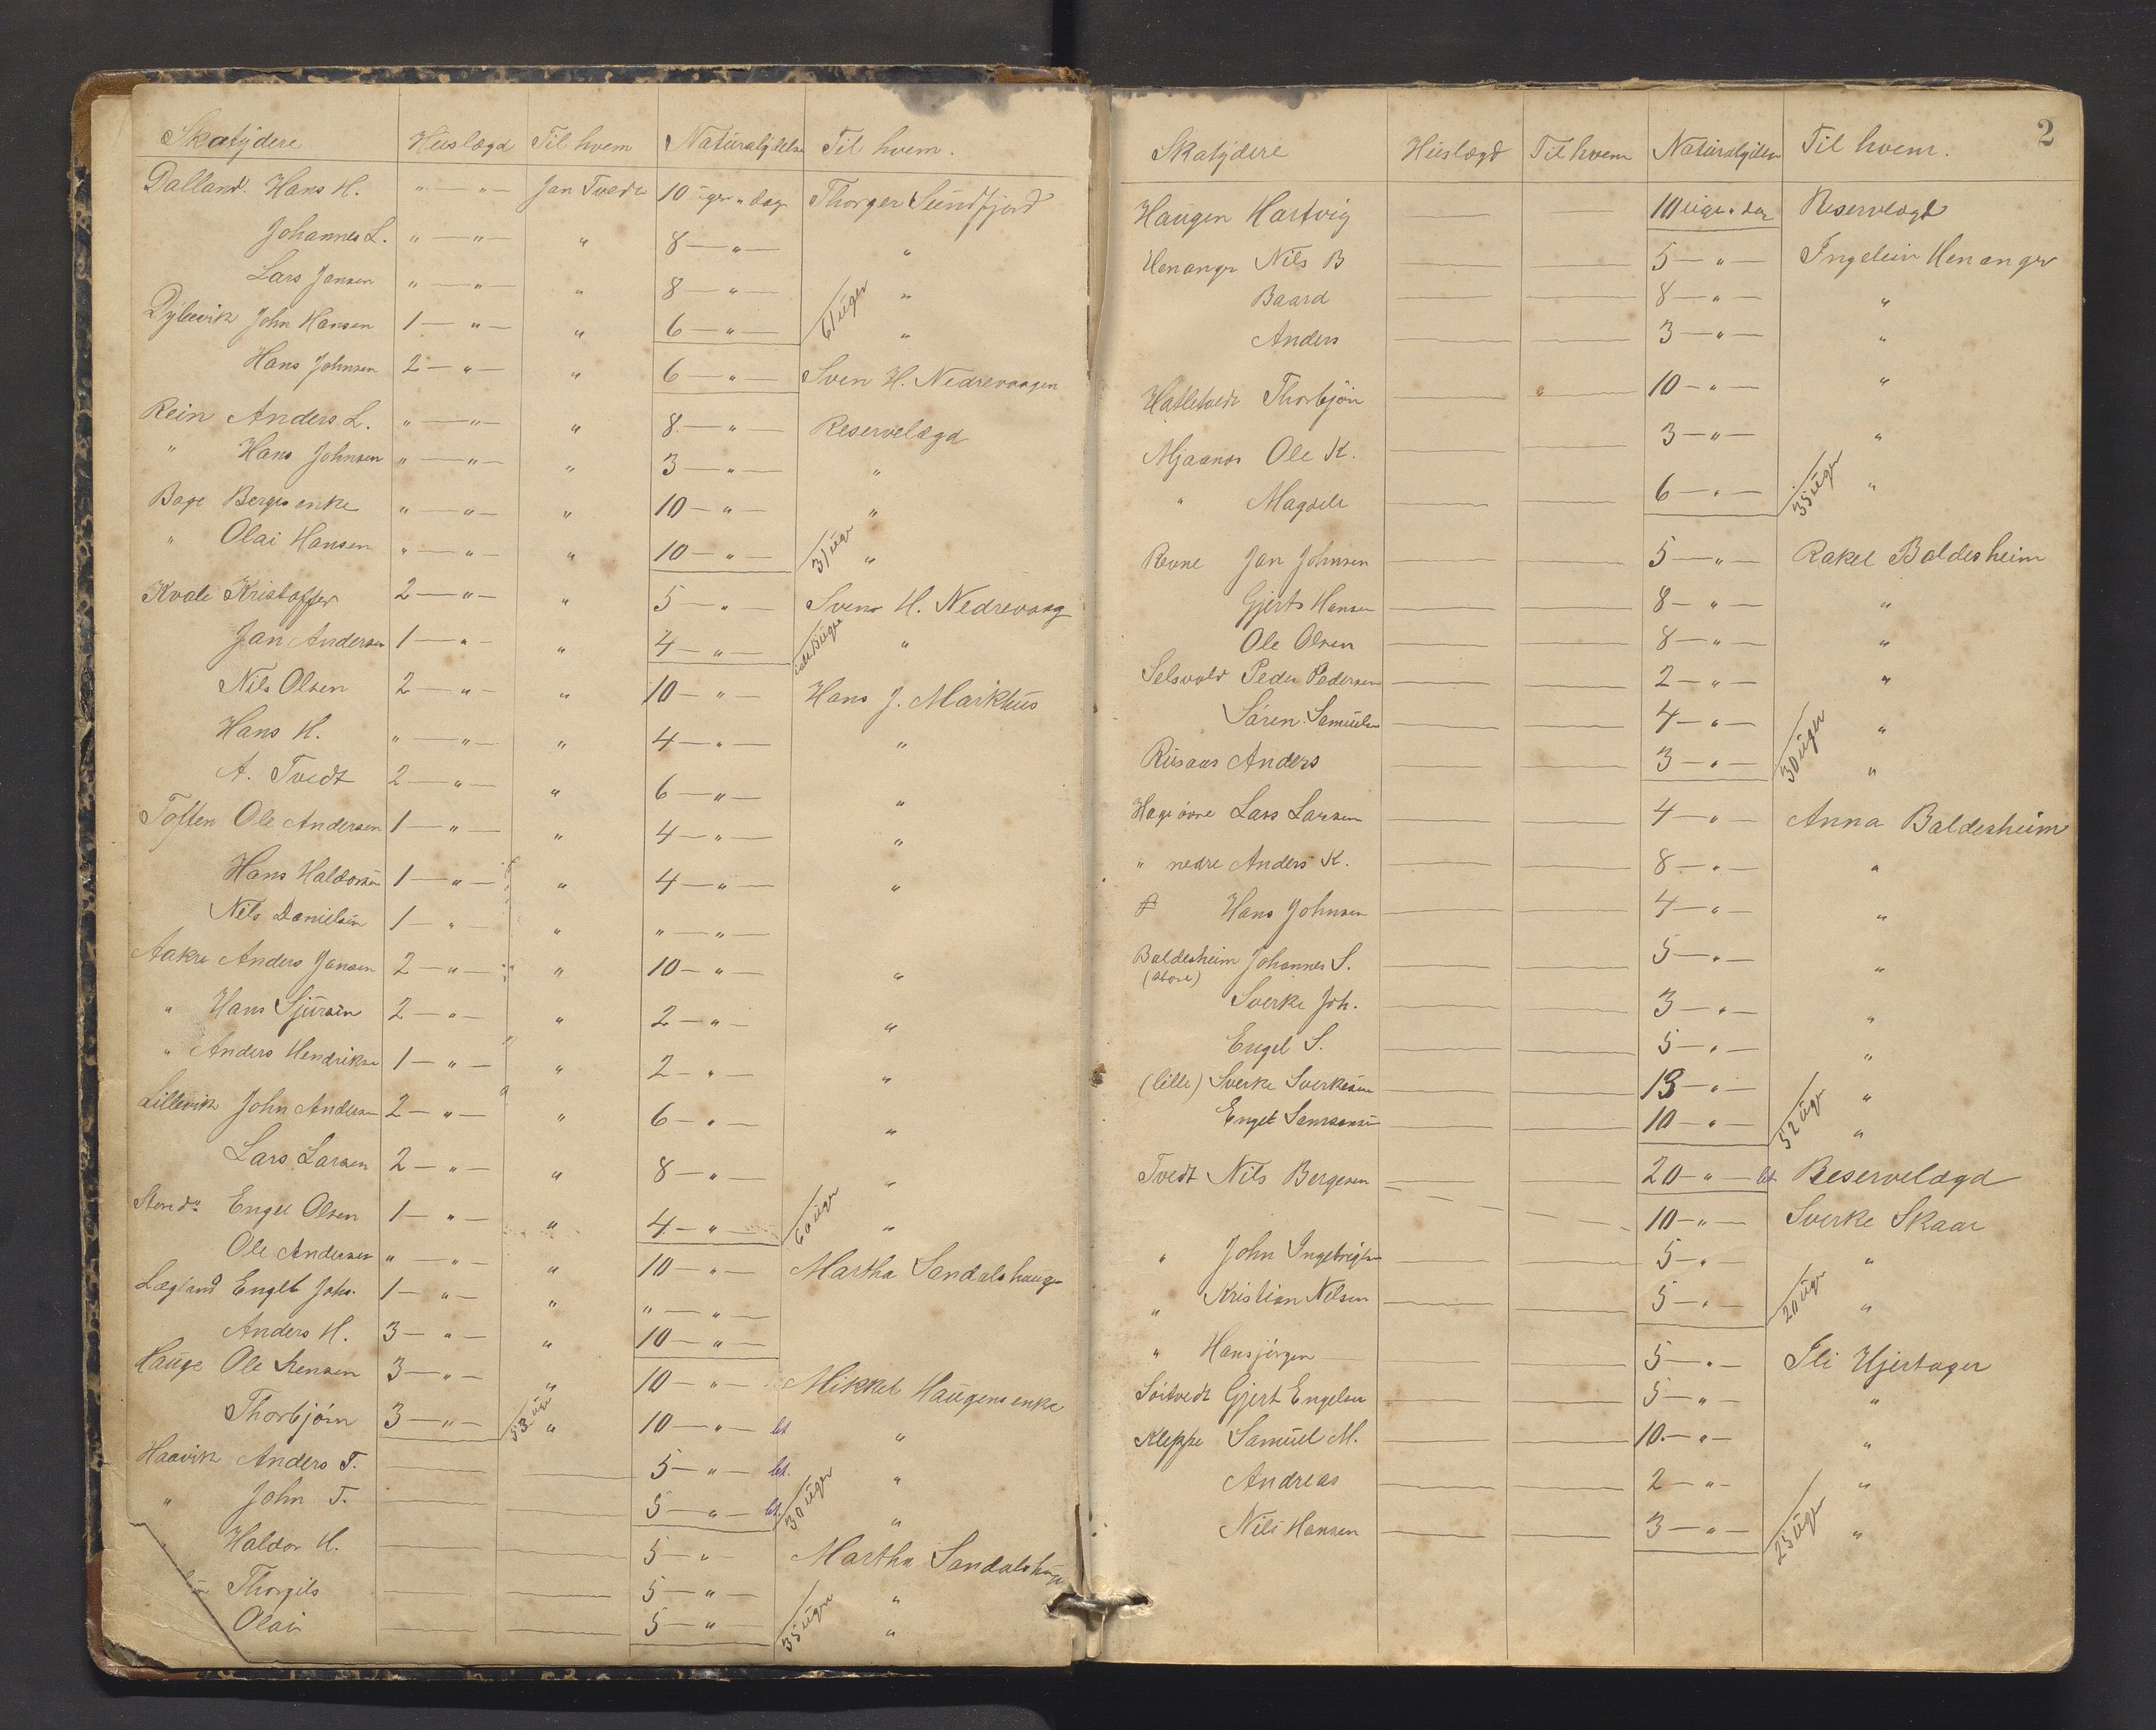 Skatydere Huslægd Til hvem Naturalydelse Til hvem.
Dalland. Hans H. " — " — Jan Tvedt 10 uger " dag Thorger Sundfjord
Johannes L. " — " — " 8 — " — "
Lars Jansen " — " — " 8 — " — "
Dylevik John Hansen 1 — " — " 6 — " — 61 uger "
Hans Johnsen 2 — " — " 6 — " — Sven H. Nedrevaagen
Rein Anders L. " — " — " 8 — " — Reservelægd
" Hans Johnsen " — " — " 3 — " — "
Bage Berges enke " — " — " 10 — " — "
" Olai Hansen " — " — " 10 — " — 31 uger "
Kvale Kristoffer 2 — " — " 5 — " — Sven H. Nedrevaag
Jan Andersen 1 — " — " 4 — " — "
Nils Olsen 2 — " — " 10 — " — Hans J. Markhus
Hans H. " — " — " 4 — " — "
A. Tvedt 2 — " — " 6 — " — "
Toften Ole Andersen 1 — " — " 4 — " — "
Hans Haldorsen 1 — " — " 4 — " — "
Nils Danielsen 1 — " — " " — " —
Aakre Anders Jansen 2 — " — " 10 — " — "
" Hans Sjursen 2 — " — " 2 — " — "
" Anders Hendriksen 1 — " — " 2 — " — "
Lillevik John Andersen 2 — " — " 6 — " — "
Lars Larsen 2 — " — " 8 — " — "
Engel Olsen 1 — " — " 4 — " — 60 uger "
Ole Andersen " — " — " 10 — " — Martha Sandalshaugen
Lægland Engel Johs. 1 — " — " " — " —
Anders H. 3 — " — " 10 — " —
Hauge Ole Stensen 3 — " — " 10 — " — Mikkel Haugens enke
Thorbjørn 3 — " — 53 uger " 10 — " — bt "
Haavik Anders T. — — 5 — " — bt. "
" John T. — — 5 — " — bt. 30 uger "
Haldor H. — — 5 — " — Martha Sandalshaug
Thorgils — — 5 — " — "
Olai — — 5 — " — 35 uger "
2
Skatydere Huslægd Til hvem Naturalydelse Til hvem.
Haugen Hartvig — — 10 uger " dag Reservelægd
Henanger Nils B — — 5 — " — Ingeleiv Henanger
Baard — — 8 — " — "
Anders — — 3 — " — "
Hatletvedt Thorbjørn — — 10 — " — "
Mjaanes Ole K. — — 3 — " — "
" Magdele — — 6 — " — 35 uger "
Revne Jan Johnsen — — 5 — " — Rakel Baldesheim
Gjert Hansen — — 8 — " — "
Ole Olsen — — 8 — " — "
Selsvold Peder Pedersen — — 2 — " — "
Søren Samuelsen — — 4 — " — "
Risaas Anders — — 3 — " — 30 uger "
Hage øvre Lars Larsen — — 4 — " — Anna Baldesheim
" nedre Anders K. — — 8 — " — "
Hans Johnsen — — 4 — " — "
Baldesheim (store) Johannes S. — — 5 — " — "
Sverke Joh. — — 3 — " — "
Engel S. — — 5 — " — "
(lille) Sverke Sverkesen — — 13 — " — "
Engel Samsonsen — — 10 — " — 52 uger "
Tvedt Nils Bergesen — — 20 — " — bt Reservelægd
— — 10 — " — Sverke Skaar
" John Ingebrigtsen — — 5 — " — "
" Kristian Nilsen — — 5 — " — 20 uger "
" Hansjørgen — — 5 — " — Eli Hjertager
Søitvedt Gjert Engelsen — — 5 — " — "
Kleppe Samuel M. — — 10 — " — "
Andreas — — 2 — " — "
Nils Hansen — — 3 — " — 25 uger "